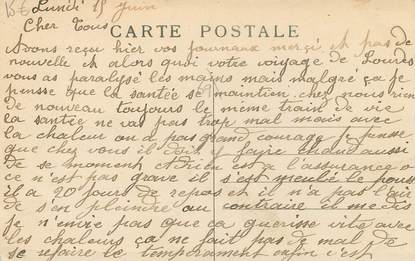 Lundi 15 Juin
Cher Tous
CARTE POSTALE
Avons reçu hier vos journaux merçi et pas de
nouvelle et alors quoi votre voyage de Lourdes
vous as paralysé les mains mais malgré ça je
pense que la santée se maintien. chez nous rien
de nouveau toujours le même train de vie
la santée ne vas pas trop mal mais avec
la chaleur on a pas grand courage je pense
que chez vous il doit y faire chaud aussi
De se moment est a l'assurance
ce n'est pas grave il s'est meulé le pouce
il a 20 jours de repos et il n'a pas l'air
de s'en pleindre au contraire il me dis
je n'envie pas que ça guerisse vite avec
les chaleurs ça ne fait pas de mal de
se refaire le temperament enfin c'est